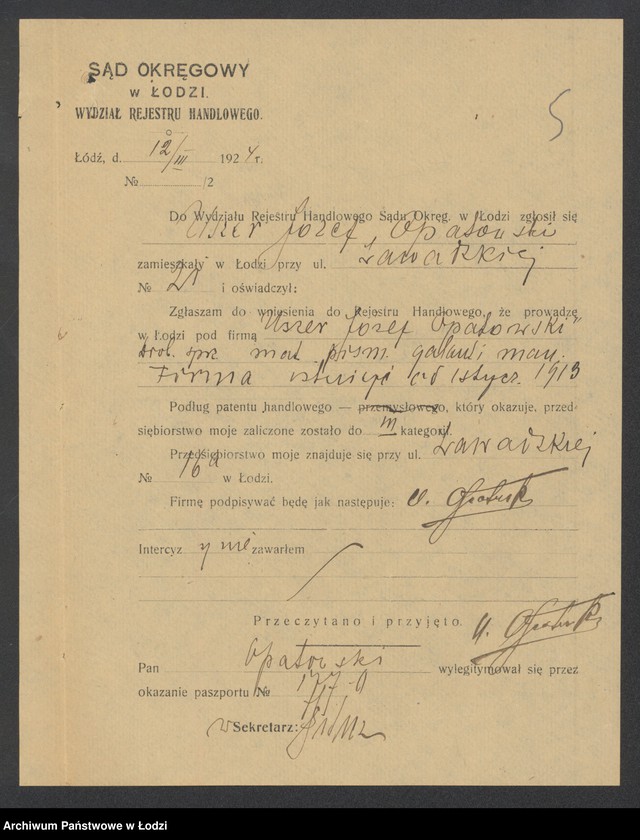 SĄD OKRĘGOWY
w ŁODZI.
WYDZIAŁ REJESTRU HANDLOWEGO.
5
Łódź, d. 12/III 1924 r.
№ /2
Do Wydziału Rejestru Handlowego Sądu Okręg. w Łodzi zgłosił się
Uszer Józef Opatowski
zamieszkały w Łodzi przy ul. Zawadzkiej
№ 21 i oświadczył:
Zgłaszam do wniesienia do Rejestru Handlowego, że prowadzę
w Łodzi pod firmą "Uszer Józef Opatowski"
drob. sprz. mat. piśm. galant. i man.
Firma istnieje od 1 stycz. 1913
Podług patentu handlowego — przemysłowego, który okazuje, przed-
siębiorstwo moje zaliczone zostało do III kategorji.
Przedsiębiorstwo moje znajduje się przy ul. Zawadzkiej
№ 16a w Łodzi.
Firmę podpisywać będę jak następuje: U. Opatowski
Intercyzy nie zawarłem
Przeczytano i przyjęto. U. Opatowski
Pan Opatowski wylegitymował się przez
okazanie paszportu №
Sekretarz:
Archiwum Państwowe w Łodzi